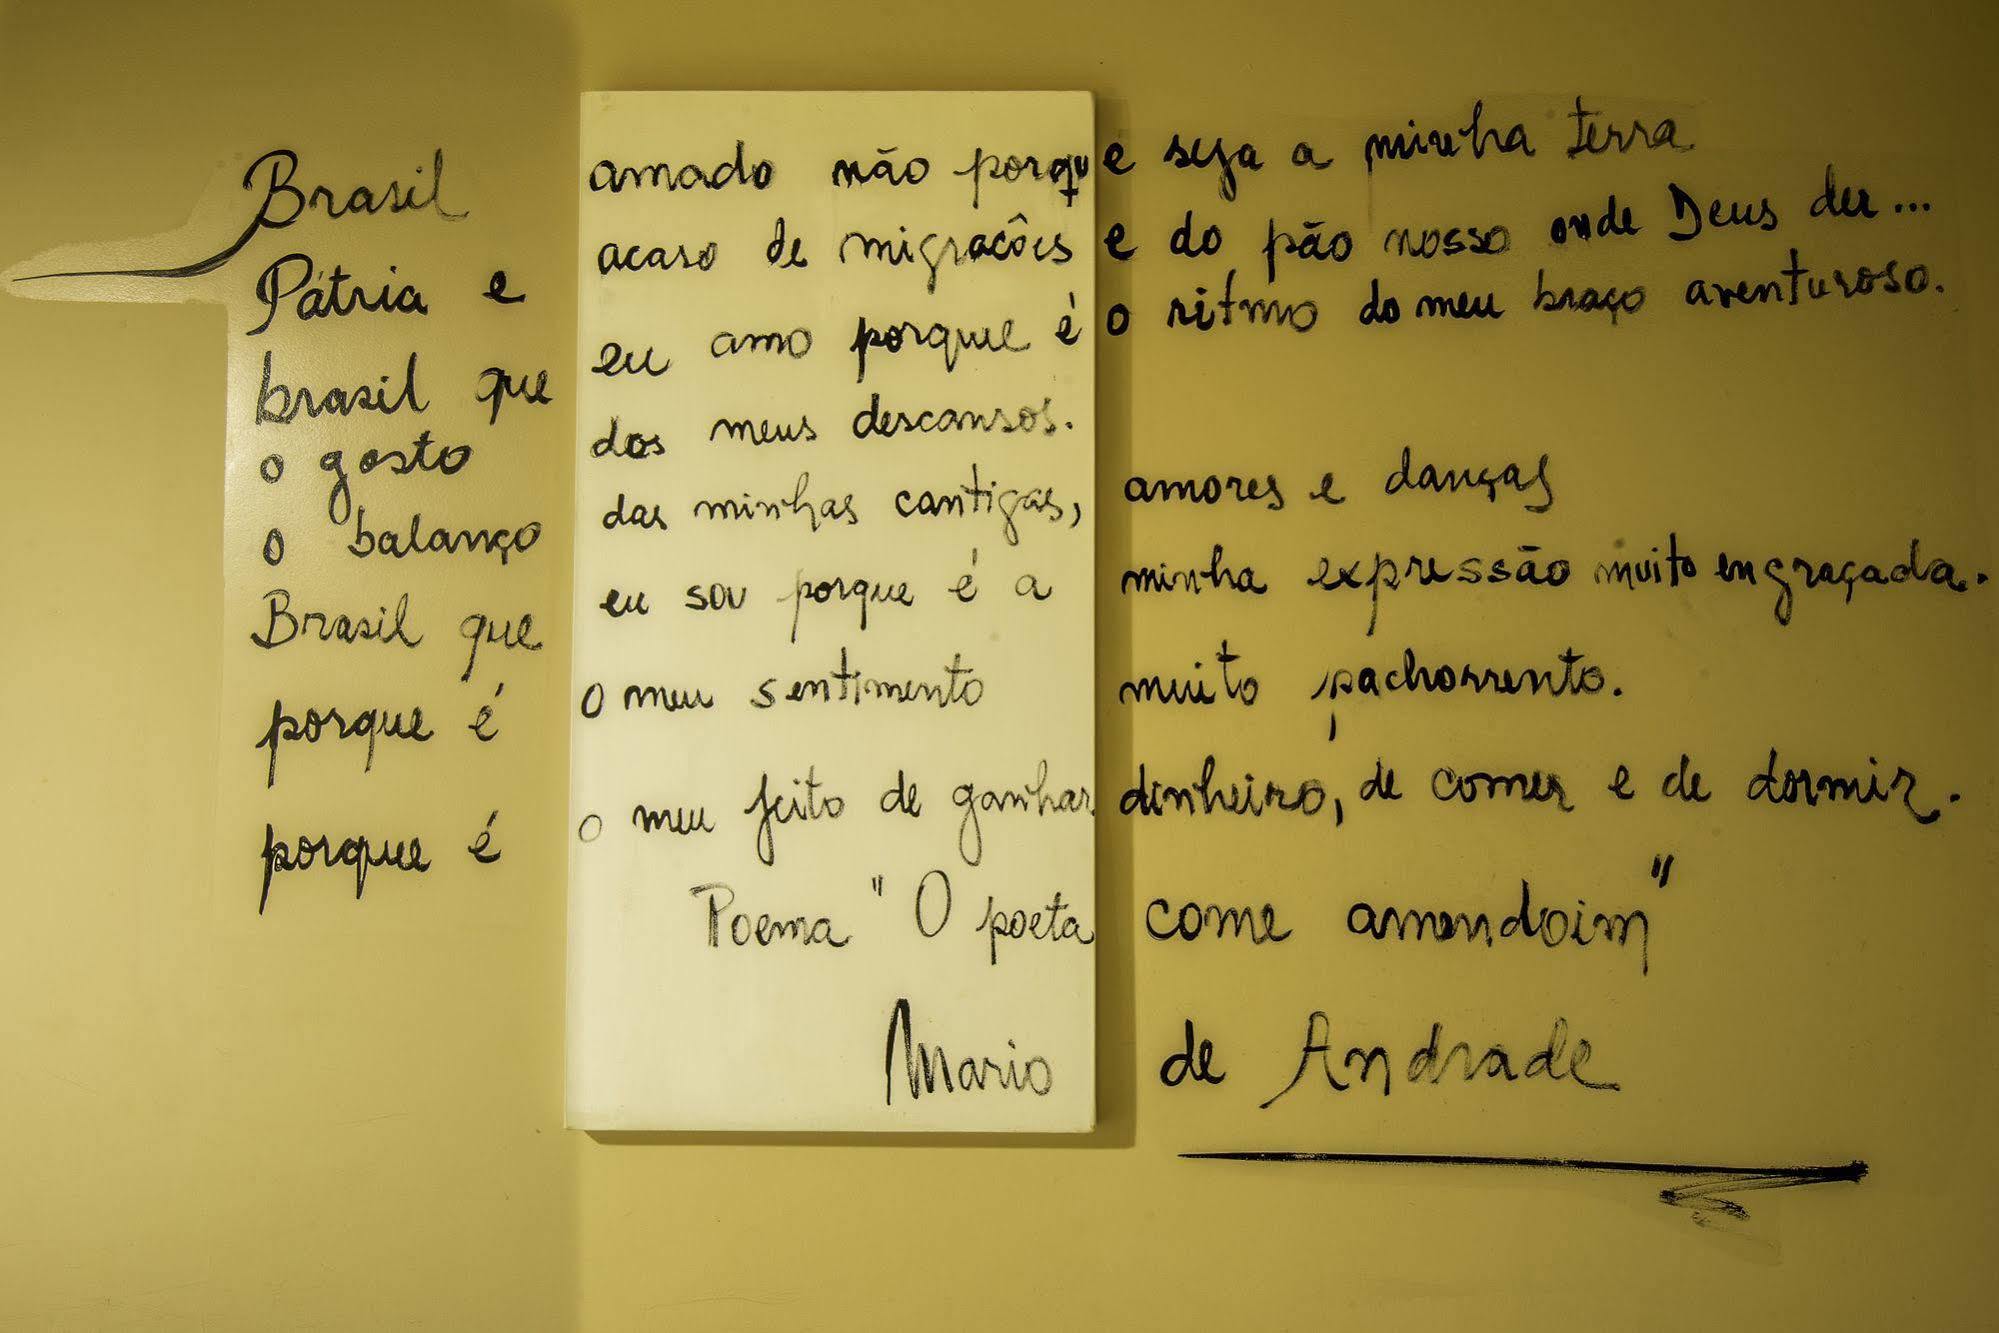 Brasil amado não porque seja a minha terra
Pátria e acaso de migracôes e do pão nosso onde Deus der...
brasil que eu amo porque é o ritmo do meu braço aventuroso.
o gosto dos meus descansos.
o balanço das minhas cantigas, amores e danças
Brasil que eu sou porque é a minha expressão muito engraçada.
porque é o meu sentimento muito pachorrento.
porque é o meu jeito de ganhar dinheiro, de comer e de dormir.
Poema "O poeta come amendoim"
Mario de Andrade